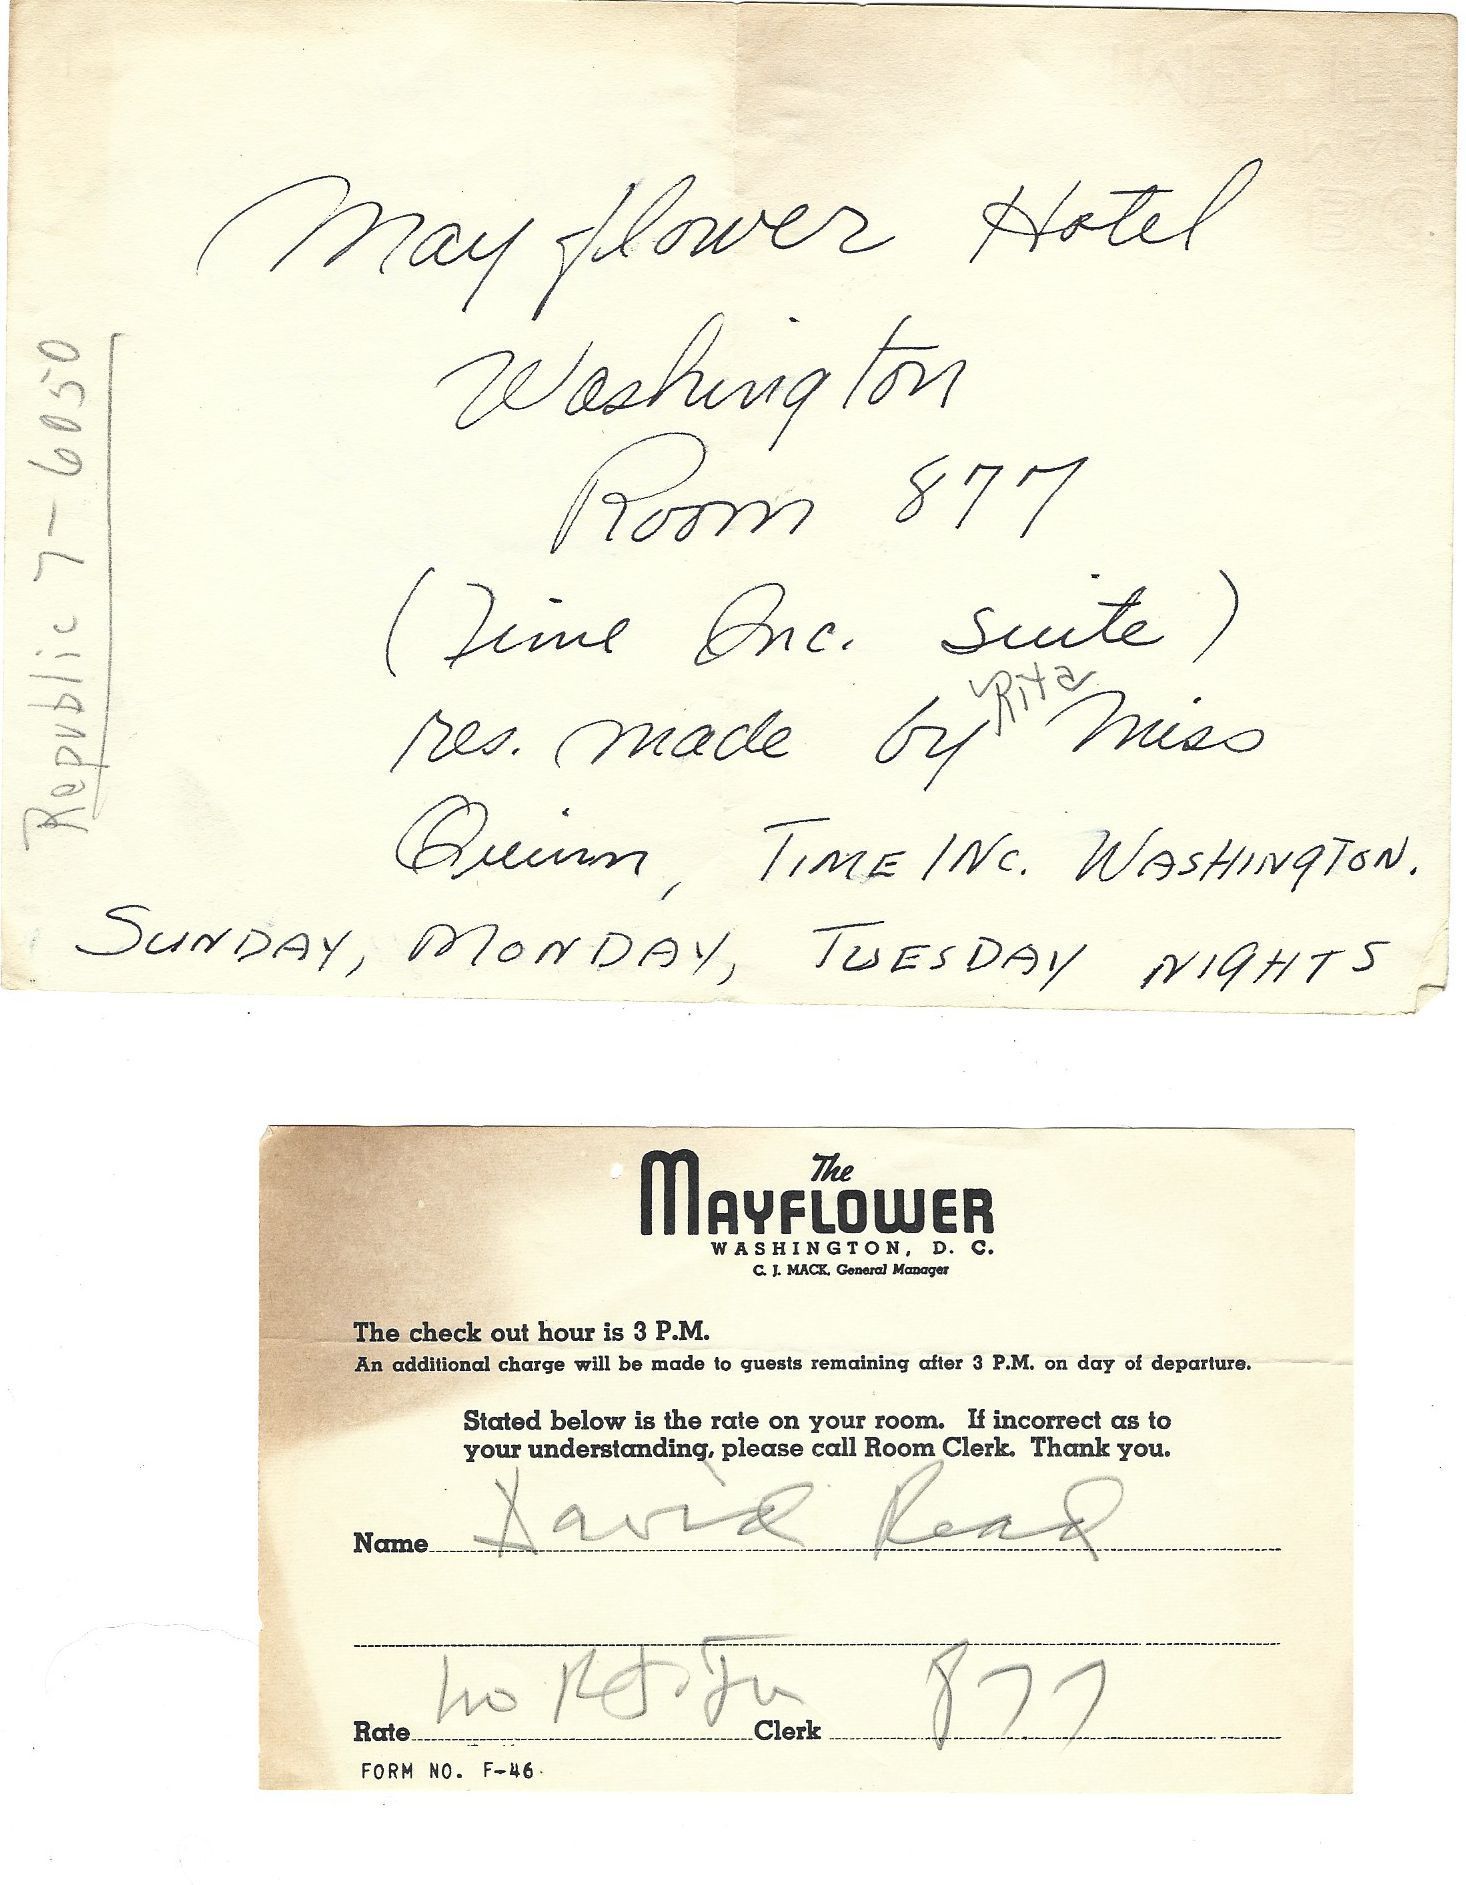 Mayflower Hotel
Washington
Room 877
(Time Inc. suite)
res. made by Rita Miss
Quinn, TIME INC. WASHINGTON.
SUNDAY, MONDAY, TUESDAY NIGHTS
Republic 7-6050
The
MAYFLOWER
WASHINGTON, D. C.
C. J. MACK, General Manager
The check out hour is 3 P.M.
An additional charge will be made to guests remaining after 3 P.M. on day of departure.
Stated below is the rate on your room. If incorrect as to
your understanding, please call Room Clerk. Thank you.
Name David Read
Rate Clerk 877
FORM NO. F-46